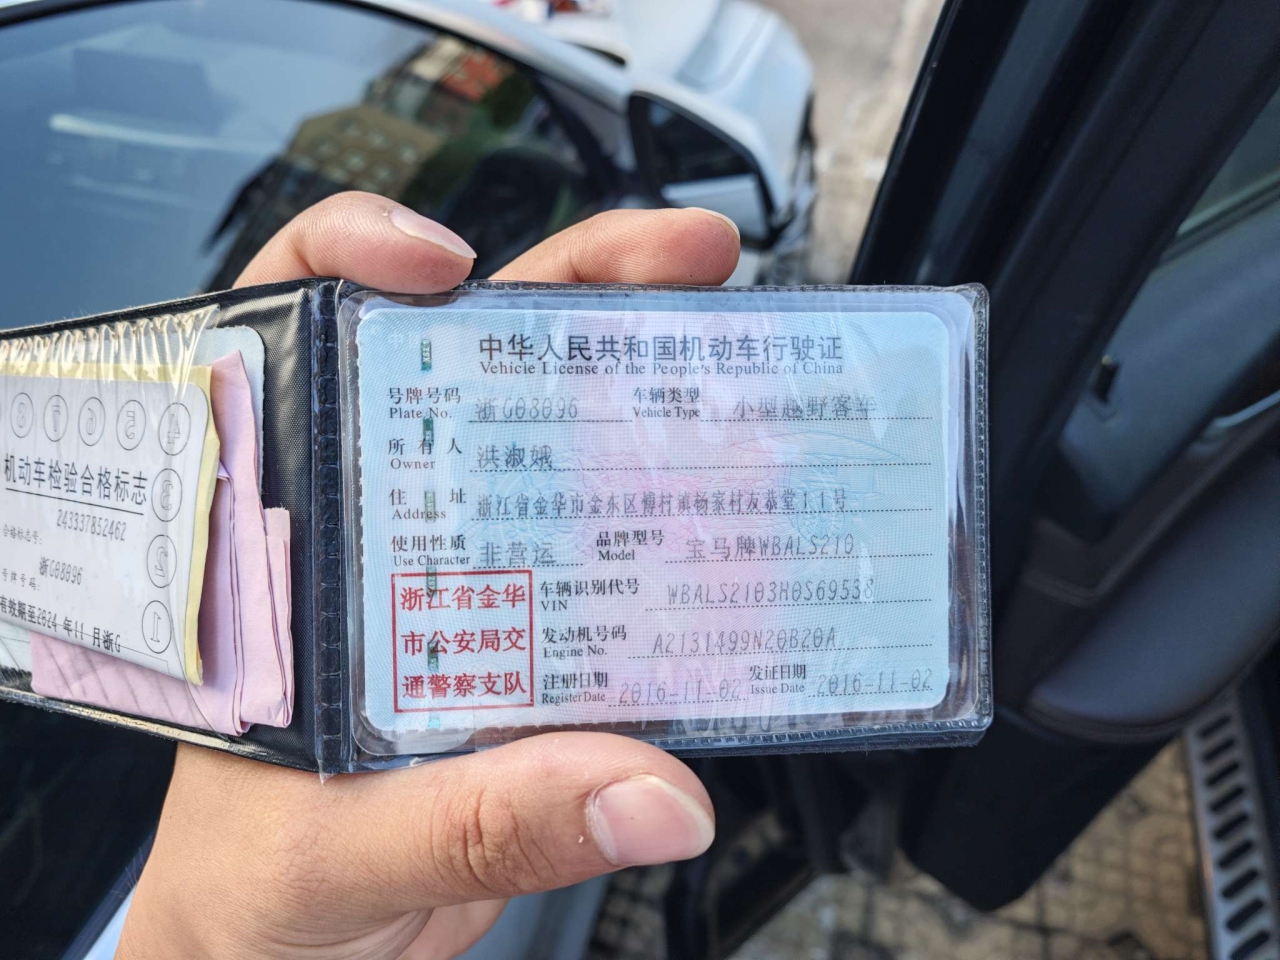 中华人民共和国机动车行驶证
Vehicle License of the People's Republic of China
号牌号码 浙G03096 车辆类型 小型越野客车
Plate No. Vehicle Type
所有人 洪淑娥
Owner
住址 浙江省金华市金东区傅村镇杨家村友恭堂11号
Address
使用性质 非营运 品牌型号 宝马牌WBALS210
Use Character Model
浙江省金华
市公安局交
通警察支队
车辆识别代号 WBALS2103H0S69538
VIN
发动机号码 A2131499N20B20A
Engine No.
注册日期 2016-11-02 发证日期 2016-11-02
Register Date Issue Date
8 7 6 5 4
3
2
1
机动车检验合格标志
243337852462
合格标志号:
浙G03096
号牌号码:
有效期至2024年11月浙G